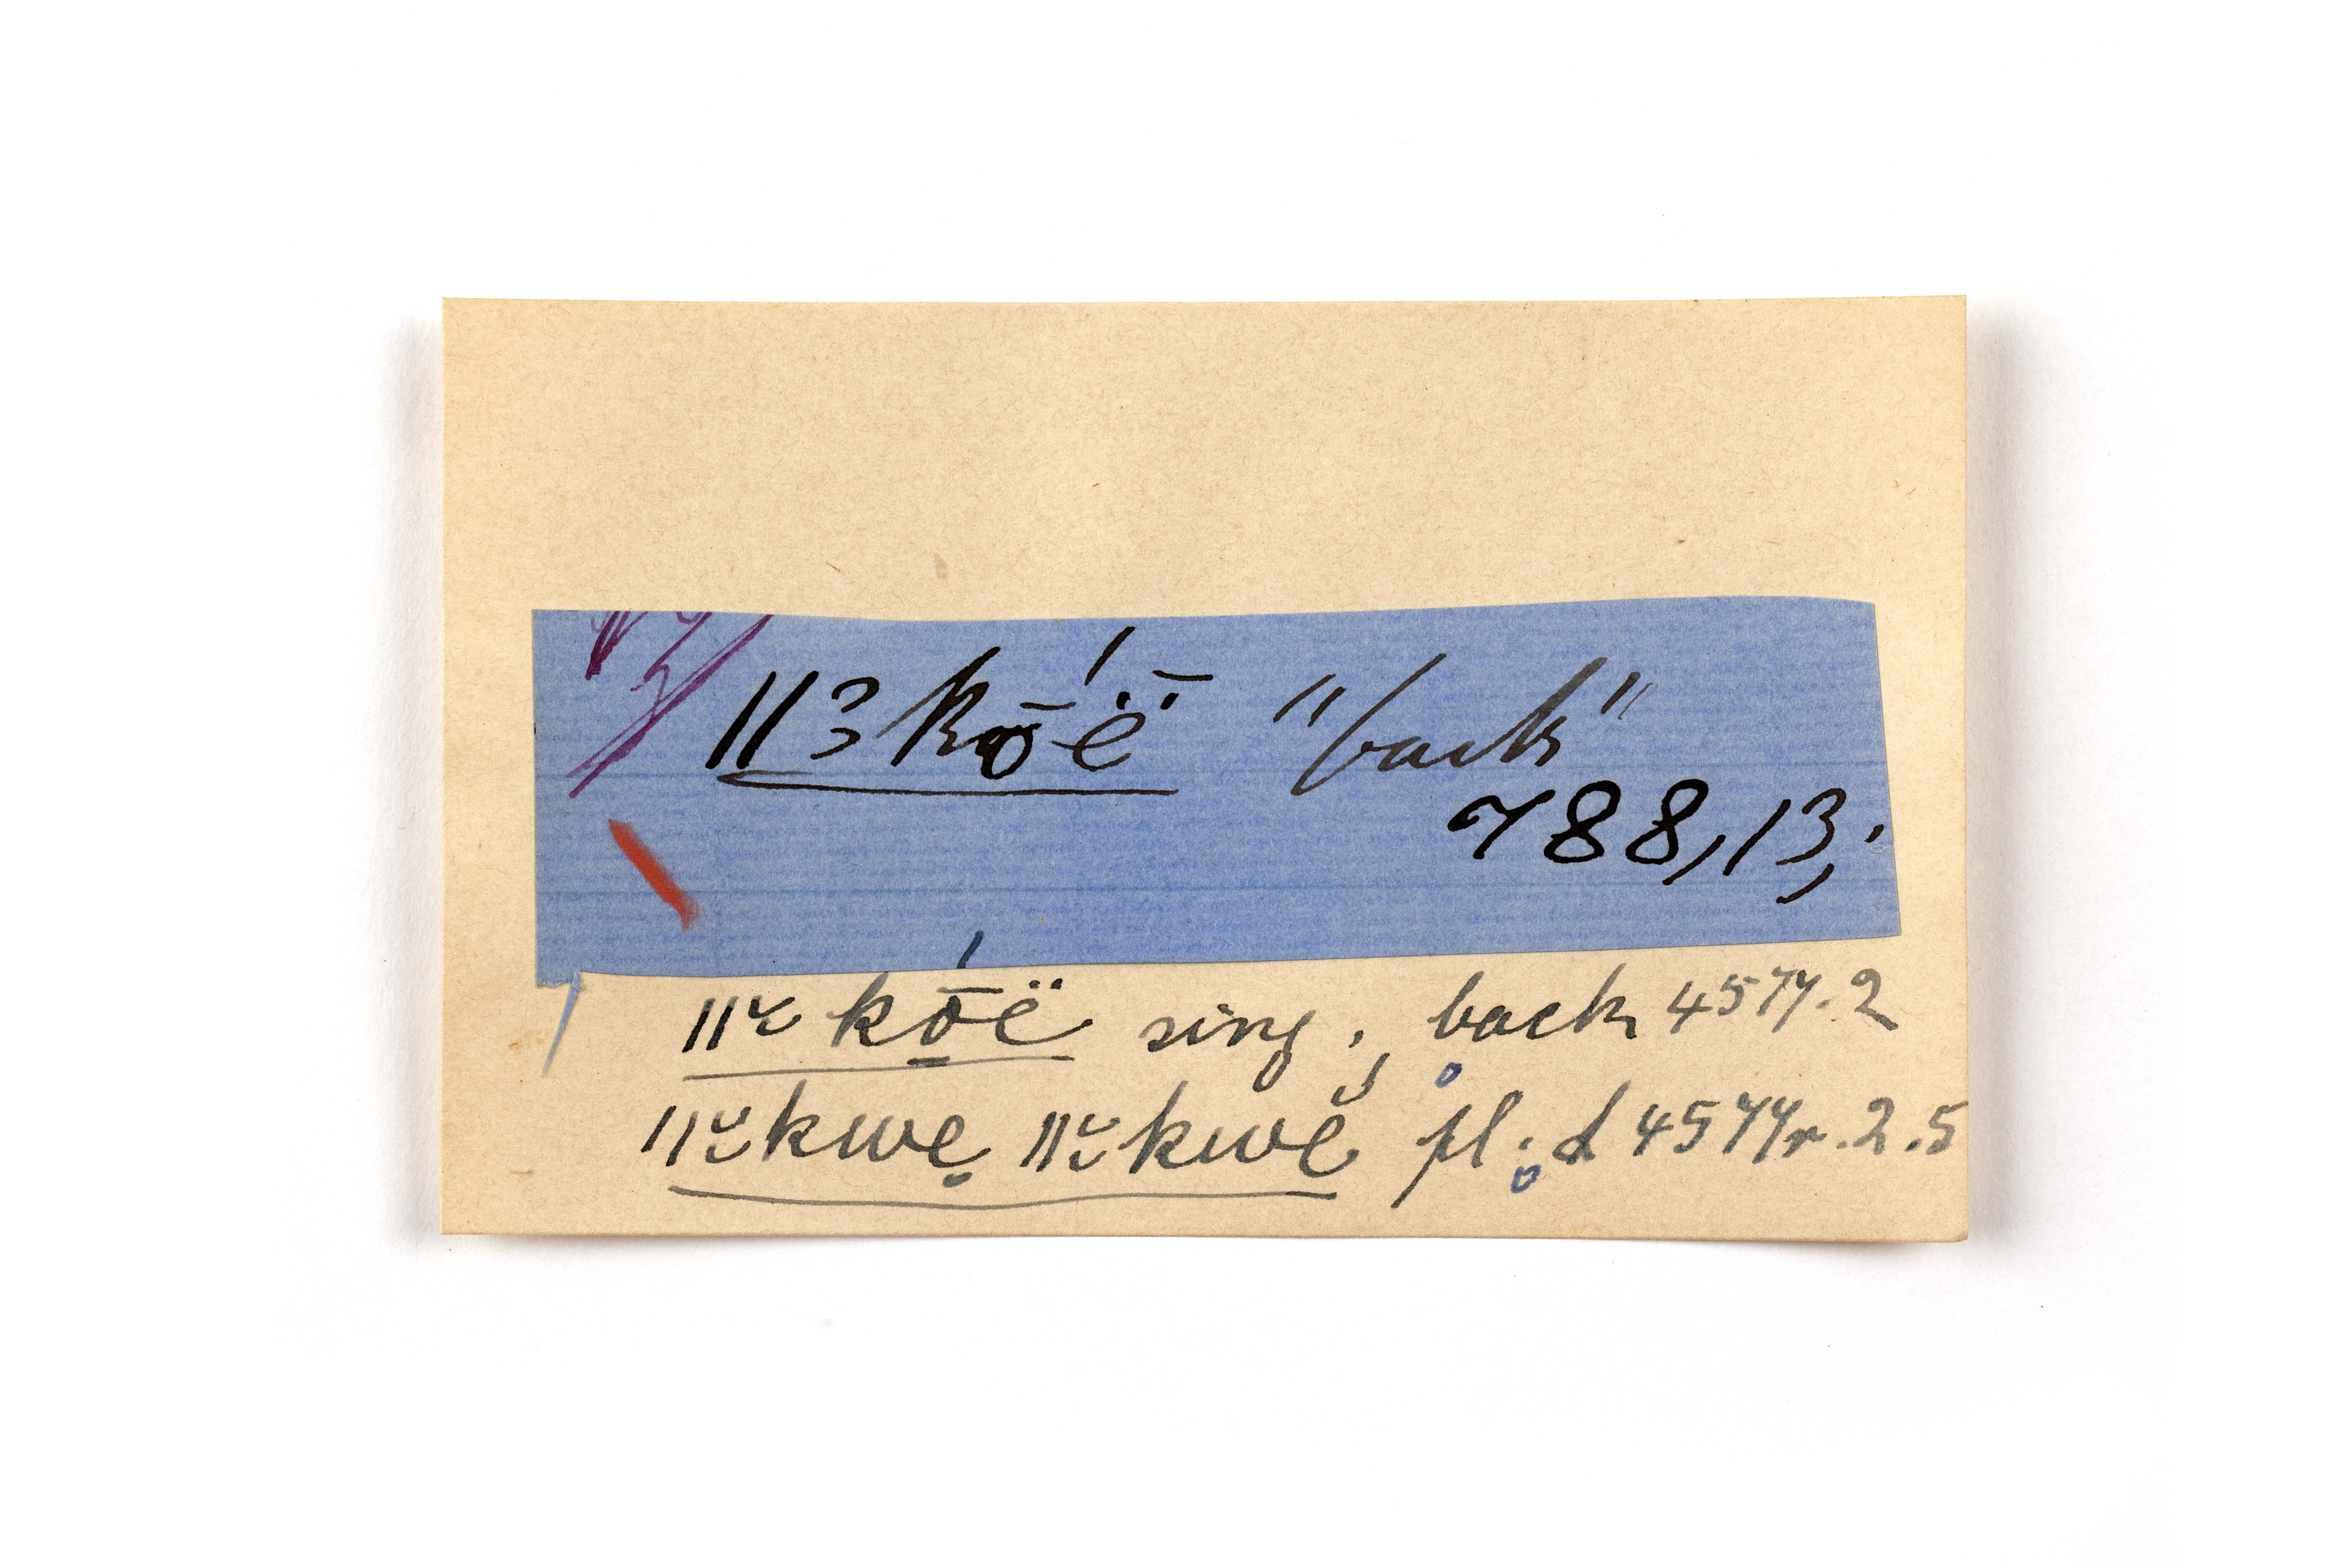 ||3kṓ̤ë̄ "back"
788,13;
||ꭓkṓ̤ë sing. back 4577.2
||ꭓkwe̤ ||ꭓkwĕ pl. d 4577r.2.5